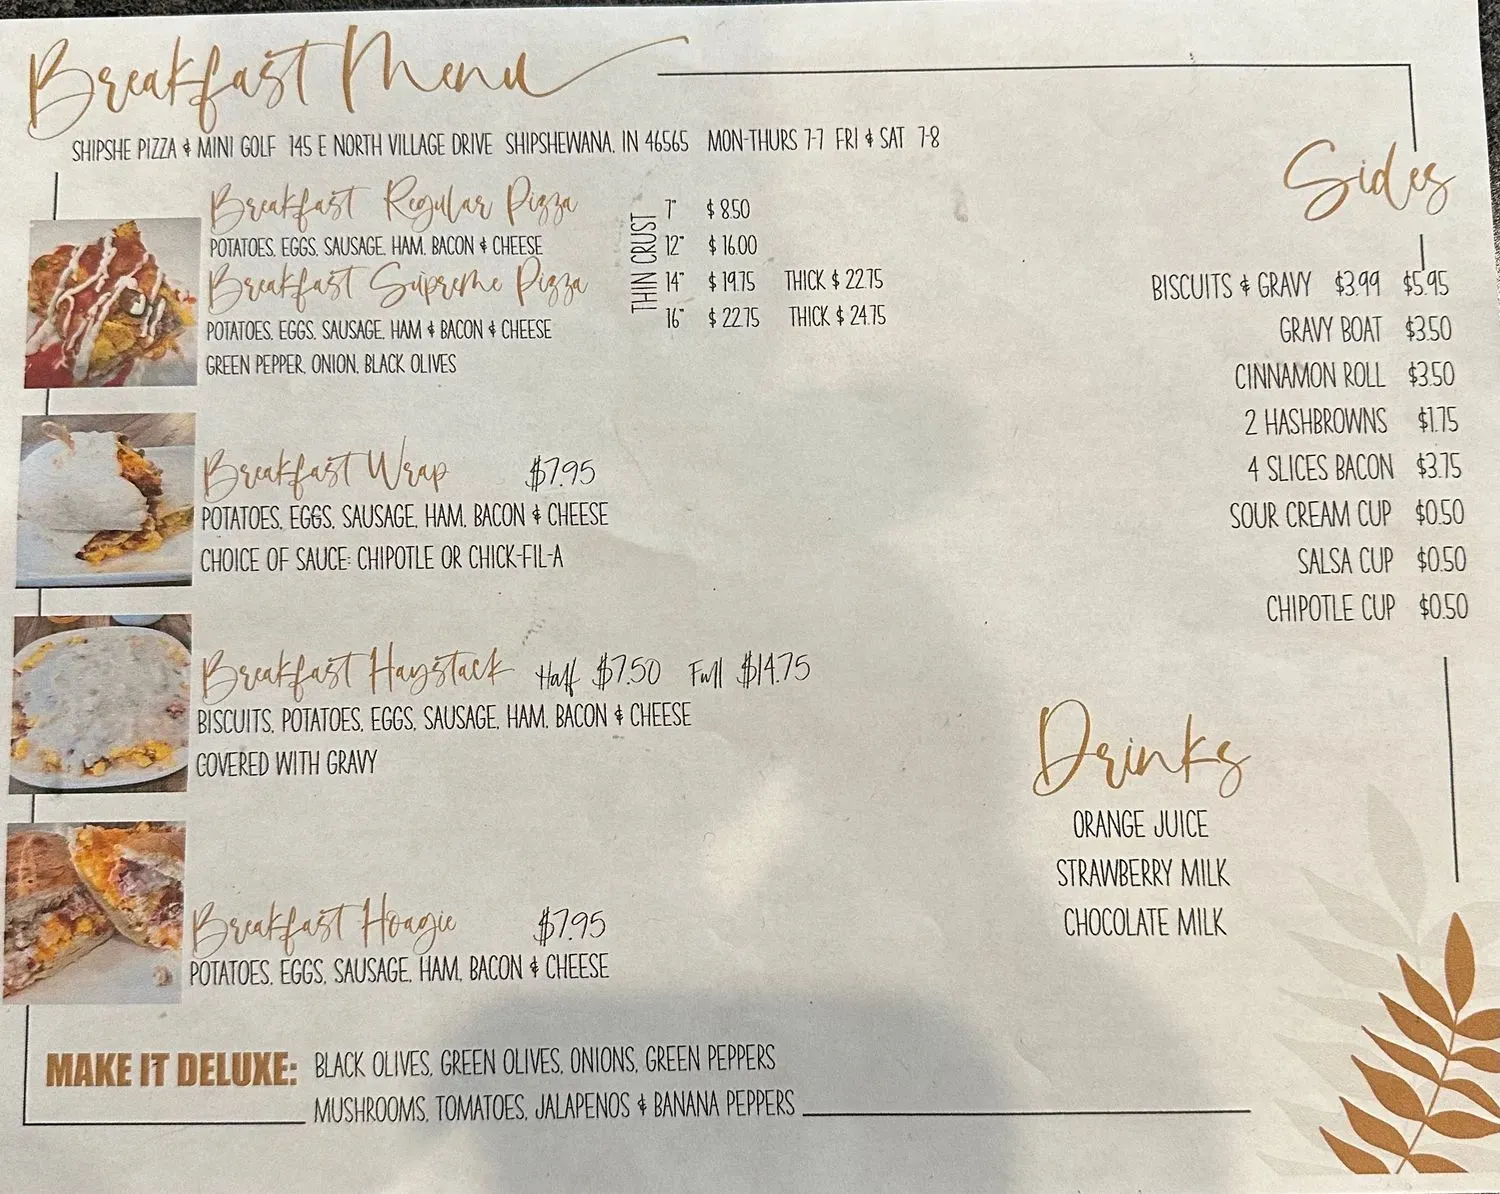 Breakfast Menu
SHIPSHE PIZZA & MINI GOLF 145 E NORTH VILLAGE DRIVE SHIPSHEWANA, IN 46565 MON-THURS 7-7 FRI & SAT 7-8
Breakfast Regular Pizza
POTATOES, EGGS, SAUSAGE, HAM, BACON & CHEESE
Breakfast Supreme Pizza
POTATOES, EGGS, SAUSAGE, HAM & BACON & CHEESE
GREEN PEPPER, ONION, BLACK OLIVES
THIN CRUST
7" $8.50
12" $16.00
14" $19.75 THICK $22.75
16" $22.75 THICK $24.75
Breakfast Wrap $7.95
POTATOES, EGGS, SAUSAGE, HAM, BACON & CHEESE
CHOICE OF SAUCE: CHIPOTLE OR CHICK-FIL-A
Breakfast Haystack Half $7.50 Full $14.75
BISCUITS, POTATOES, EGGS, SAUSAGE, HAM, BACON & CHEESE
COVERED WITH GRAVY
Breakfast Hoagie $7.95
POTATOES, EGGS, SAUSAGE, HAM, BACON & CHEESE
MAKE IT DELUXE: BLACK OLIVES, GREEN OLIVES, ONIONS, GREEN PEPPERS
MUSHROOMS, TOMATOES, JALAPENOS & BANANA PEPPERS
Sides
BISCUITS & GRAVY $3.99 $5.95
GRAVY BOAT $3.50
CINNAMON ROLL $3.50
2 HASHBROWNS $1.75
4 SLICES BACON $3.75
SOUR CREAM CUP $0.50
SALSA CUP $0.50
CHIPOTLE CUP $0.50
Drinks
ORANGE JUICE
STRAWBERRY MILK
CHOCOLATE MILK